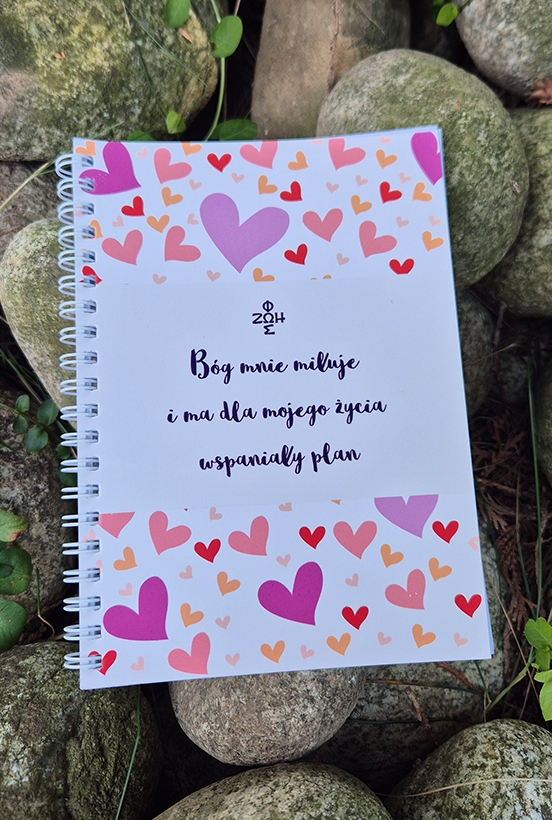 Φ
ΖΩΗ
Σ
Bóg mnie miłuje
i ma dla mojego życia
wspaniały plan